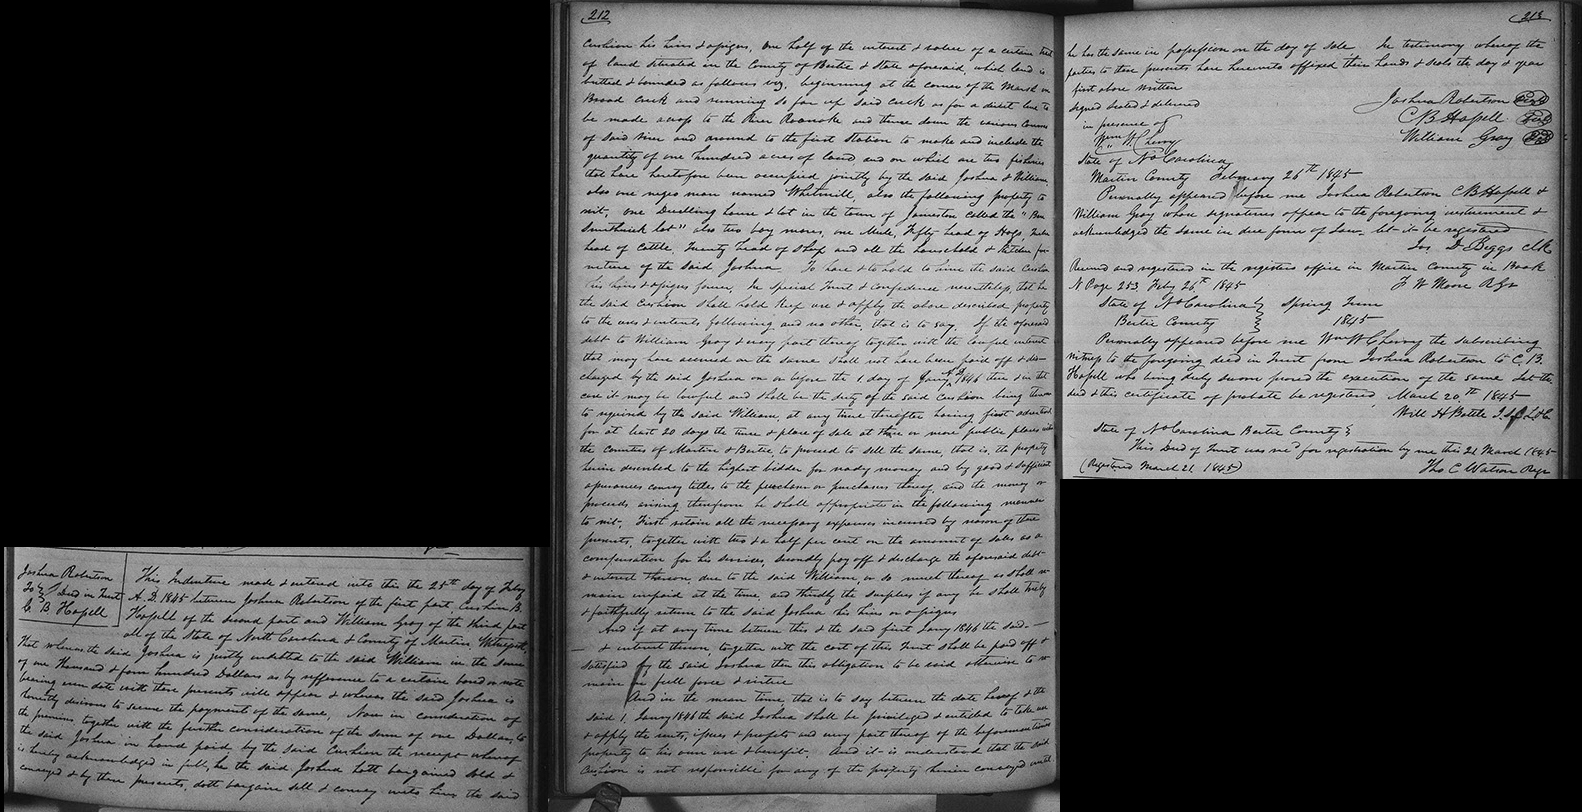 Joshua Robertson
To } Deed in Trust
C. B. Hassell
This Indenture made & entered into this the 25th day of Feby
A. D. 1845 between Joshua Robertson of the first part, Cushion B.
Hassell of the second part and William Gray of the third part
all of the State of North Carolina & County of Martin. Witnesseth,
That whereas the said Joshua is justly indebted to the said William in the sum
of one thousand & four hundred Dollars as by refference to a certain bond or note
bearing even date with these presents will appear & whereas the said Joshua is
honestly desirous to secure the payment of the same, Now in consideration of
the premises together with the further consideration of the sum of one Dollar, to
the said Joshua in hand paid, by the said Cushion the receipt whereof
is hereby acknowledged in full, he the said Joshua hath bargained sold &
conveyed & by these presents, doth bargain sell & convey unto him the said
212
Cushion his heirs & assigns, One half of the interest & value of a certain tract
of land situated in the County of Bertie & State aforesaid, which land is
butted & bounded as follows viz, beginning at the corner of the Marsh on
Broad Creek and running so far up said creek as for a direct line to
be made across to the River Roanoke and thence down the various courses
of said river and around to the first Station to make and include the
quantity of one hundred acres of land and on which are two fisheries
that have heretofore been occupied jointly by the said Joshua & William.
also one negro man named Whitmill, also the following property to
wit, one Dwelling house & lot in the town of Jameston called the "Ben
Smithwick lot" also two bay mares, one Mule, Fifty head of Hogs,
head of Cattle, Twenty head of Sheep and all the household & kitchen fur-
niture of the said Joshua. To have & to hold to him the said Cushion
his heirs & assigns forever, In Special Trust & Confidence nevertheless, that he
the said Cushion shall hold keep use & apply the above described property
to the uses & intents following and no other, that is to say, If the aforesaid
debt to William Gray & every part thereof together with the lawful interest
that may have accrued on the same shall not have been paid off & dis-
charged by the said Joshua on or before the 1 day of Jany A.D. 1846 then & in that
case it may be lawful and shall be the duty of the said Cushion being thereunto
to required by the said William, at any time thereafter having first advertised
for at least 20 days the time & place of sale at three or more public places within
the Counties of Martin & Bertie, to proceed to sell the same, that is, the property
herein described to the highest bidder for ready money and by good & sufficient
assurances convey titles to the purchaser or purchasers thereof, and the money or
proceeds arising therefrom he shall appropriate in the following manner
to wit, First retain all the necessary expenses incurred by reason of these
presents, together with two & a half per cent on the amount of sales as a
compensation for his services, Secondly pay off & discharge the aforesaid debt
& interest thereon, due to the said William, or so much thereof as shall re-
main unpaid at the time, and thirdly the surpless if any be shall truly
& faithfully return to the said Joshua his heirs or assigns
And if at any time between this & the said first Jany 1846 the said —
— & interest thereon, together with the cost of this Trust shall be paid off &
satisfied by the said Joshua then this obligation to be void otherwise to re-
main in full force & virtue
And in the mean time, that is to say between the date hereof & the
said 1. Jany 1846 the said Joshua shall be privileged & entitled to take use
& apply the rents, issues & profits and every part thereof of the beforementioned
property to his own use & benefit. And it is understood that the said
Cushion is not responsible for any of the property herein conveyed until
213
he has the same in possession on the day of sale. In testimony whereof the
parties to these presents have hereunto affixed their hands & seals the day & year
first above written
Signed Sealed & delivered
in presence of
Wm. W. Cherry
Joshua Robertson Seal
C B Hassell Seal
William Gray Seal
State of No Carolina
Martin County February 26th 1845
Personally appeared before me Joshua Robertson C B Hassell &
William Gray whose signatures appear to the foregoing instrument &
acknowledged the same in due form of law. let it be registered
Jos D. Biggs Clk
Received and registered in the registers office in Martin County in Book
N Page 253 Feby 26th 1845
F W Moore Rgr
State of No Carolina } Spring Term
Bertie County } 1845
Personally appeared before me Wm W Cherry the subscribing
witness to the foregoing deed in Trust from Joshua Robertson to C. B.
Hassell who being duly sworn proved the execution of the same. Let the
deed & this certificate of probate be registered, March 20.th 1845
Will H Battle J. S. C. L. & E.
State of No Carolina Bertie County }
This Deed of Trust was recd for registration by me this 21 March 1845
(Registered March 21 1845)
Tho C Watson Regr